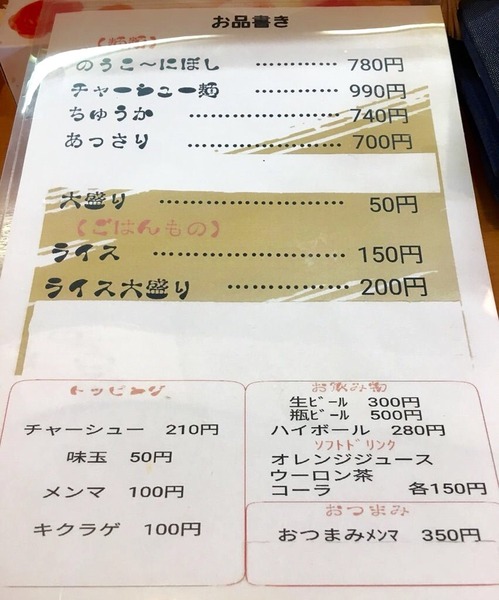 お品書き
【麺類】
のうこ〜にぼし ………… 780円
チャーシュー麺 ………… 990円
ちゅうか ………………… 740円
あっさり ………………… 700円
大盛り …………………… 50円
【ごはんもの】
ライス …………………… 150円
ライス大盛り …………… 200円
トッピング
チャーシュー 210円
味玉 50円
メンマ 100円
キクラゲ 100円
お飲み物
生ﾋﾞｰﾙ 300円
瓶ﾋﾞｰﾙ 500円
ハイボール 280円
ｿﾌﾄﾄﾞﾘﾝｸ
オレンジジュース
ウーロン茶
コーラ 各150円
おつまみ
おつまみﾒﾝﾏ 350円